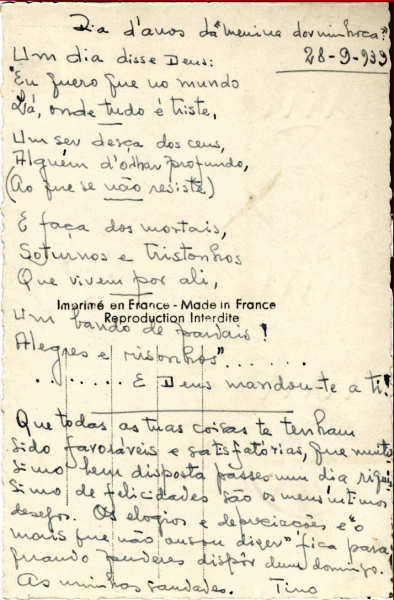 Dia d'anos da "menina dorminhoca"
28-9-939
Um dia disse Deus:
"Eu quero que no mundo
Lá, onde tudo é triste,
Um ser desça dos ceus,
Alguém d'olhar profundo,
(Ao que se não resiste)
E faça dos mortais,
Soturnos e tristonhos
Que vivem por ali,
Imprimé en France - Made in France
Reproduction Interdite
Um bando de pardais!
Alegres e risonhos"........
........ E Deus mandou-te a ti!
Que todas as tuas coisas te tenham
sido favoráveis e satisfatórias, que muitis
simo bem disposta passes um dia riquis
simo de felicidades são os meus íntimos
desejos. Os elogios e depreciações e "o
mais que não ousou dizer" fica para
quando puderes dispôr dum domingo.
As minhas saudades. Tino